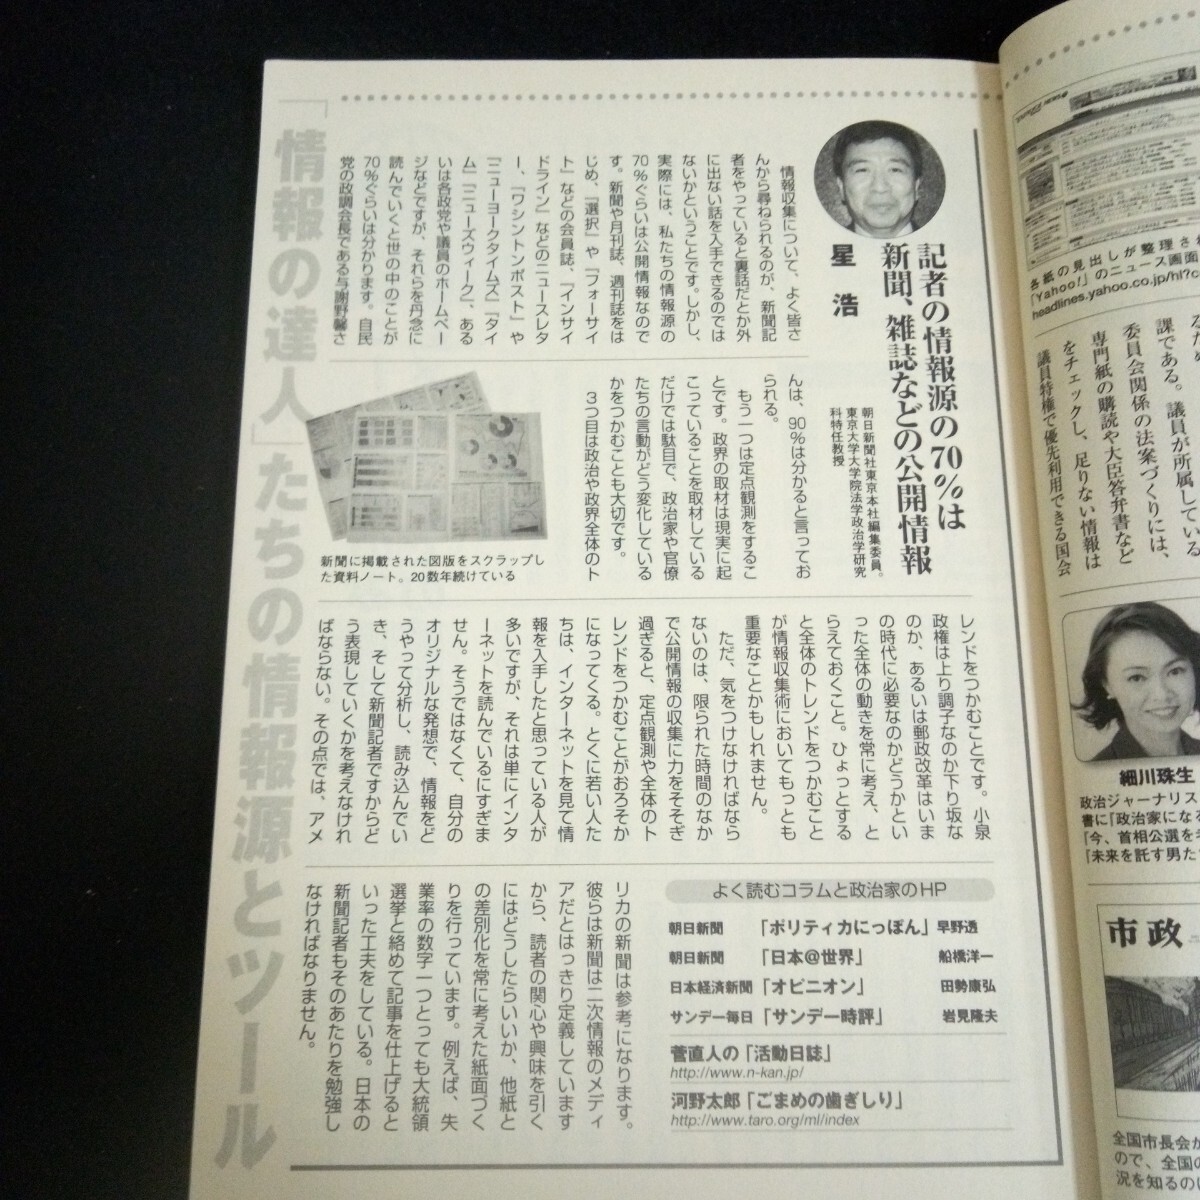 「情報の達人」たちの情報源とツール
記者の情報源の70%は
新聞、雑誌などの公開情報
星 浩
朝日新聞社東京本社編集委員。
東京大学大学院法学政治学研究
科特任教授
情報収集について、よく皆さ
んから尋ねられるのが、新聞記
者をやっていると裏話だとか外
に出ない話を入手できるのでは
ないかということです。しかし、
実際には、私たちの情報源の
70%ぐらいは公開情報なので
す。新聞や月刊誌、週刊誌をは
じめ、『選択』や『フォーサイ
ト』などの会員誌、『インサイ
ドライン』などのニュースレタ
ー、『ワシントンポスト』や
『ニューヨークタイムズ』『タイ
ム』『ニューズウィーク』、ある
いは各政党や議員のホームペー
ジなどですが、それらを丹念に
読んでいくと世の中のことが
70%ぐらいは分かります。自民
党の政調会長である与謝野馨さ
んは、90%は分かると言ってお
られる。
もう一つは定点観測をするこ
とです。政界の取材は現実に起
こっていることを取材している
だけでは駄目で、政治家や官僚
たちの言動がどう変化している
かをつかむことも大切です。
3つ目は政治や政界全体のト
新聞に掲載された図版をスクラップし
た資料ノート。20数年続けている
レンドをつかむことです。小泉
政権は上り調子なのか下り坂な
のか、あるいは郵政改革はいま
の時代に必要なのかどうかとい
った全体の動きを常に考え、と
らえておくこと。ひょっとする
と全体のトレンドをつかむこと
が情報収集術においてもっとも
重要なことかもしれません。
ただ、気をつけなければなら
ないのは、限られた時間のなか
で公開情報の収集に力をそそぎ
過ぎると、定点観測や全体のト
レンドをつかむことがおろそか
になってくる。とくに若い人た
ちは、インターネットを見て情
報を入手したと思っている人が
多いですが、それは単にインタ
ーネットを読んでいるにすぎま
せん。そうではなくて、自分の
オリジナルな発想で、情報をど
うやって分析し、読み込んでい
き、そして新聞記者ですからど
う表現していくかを考えなけれ
ばならない。その点では、アメ
リカの新聞は参考になります。
彼らは新聞は二次情報のメディ
アだとはっきり定義しています
から、読者の関心や興味を引く
にはどうしたらいいか、他紙と
の差別化を常に考えた紙面づく
りを行っています。例えば、失
業率の数字一つとっても大統領
選挙と絡めて記事を仕上げると
いった工夫をしている。日本の
新聞記者もそのあたりを勉強し
なければなりません。
よく読むコラムと政治家のHP
朝日新聞 「ポリティカにっぽん」早野透
朝日新聞 「日本@世界」 船橋洋一
日本経済新聞「オピニオン」 田勢康弘
サンデー毎日「サンデー時評」 岩見隆夫
菅直人の「活動日誌」
http://www.n-kan.jp/
河野太郎「ごまめの歯ぎしり」
http://www.taro.org/ml/index
各紙の見出しが整理され
「Yahoo!」のニュース画面
headlines.yahoo.co.jp/hl?c
課である。議員が所属している
委員会関係の法案づくりには、
専門紙の購読や大臣答弁書など
をチェックし、足りない情報は
議員特権で優先利用できる国会
細川珠生
政治ジャーナリス
書に『政治家になる
『今、首相公選を考
『未来を託す男た
市政
全国市長会か
ので、全国の
況を知るのに